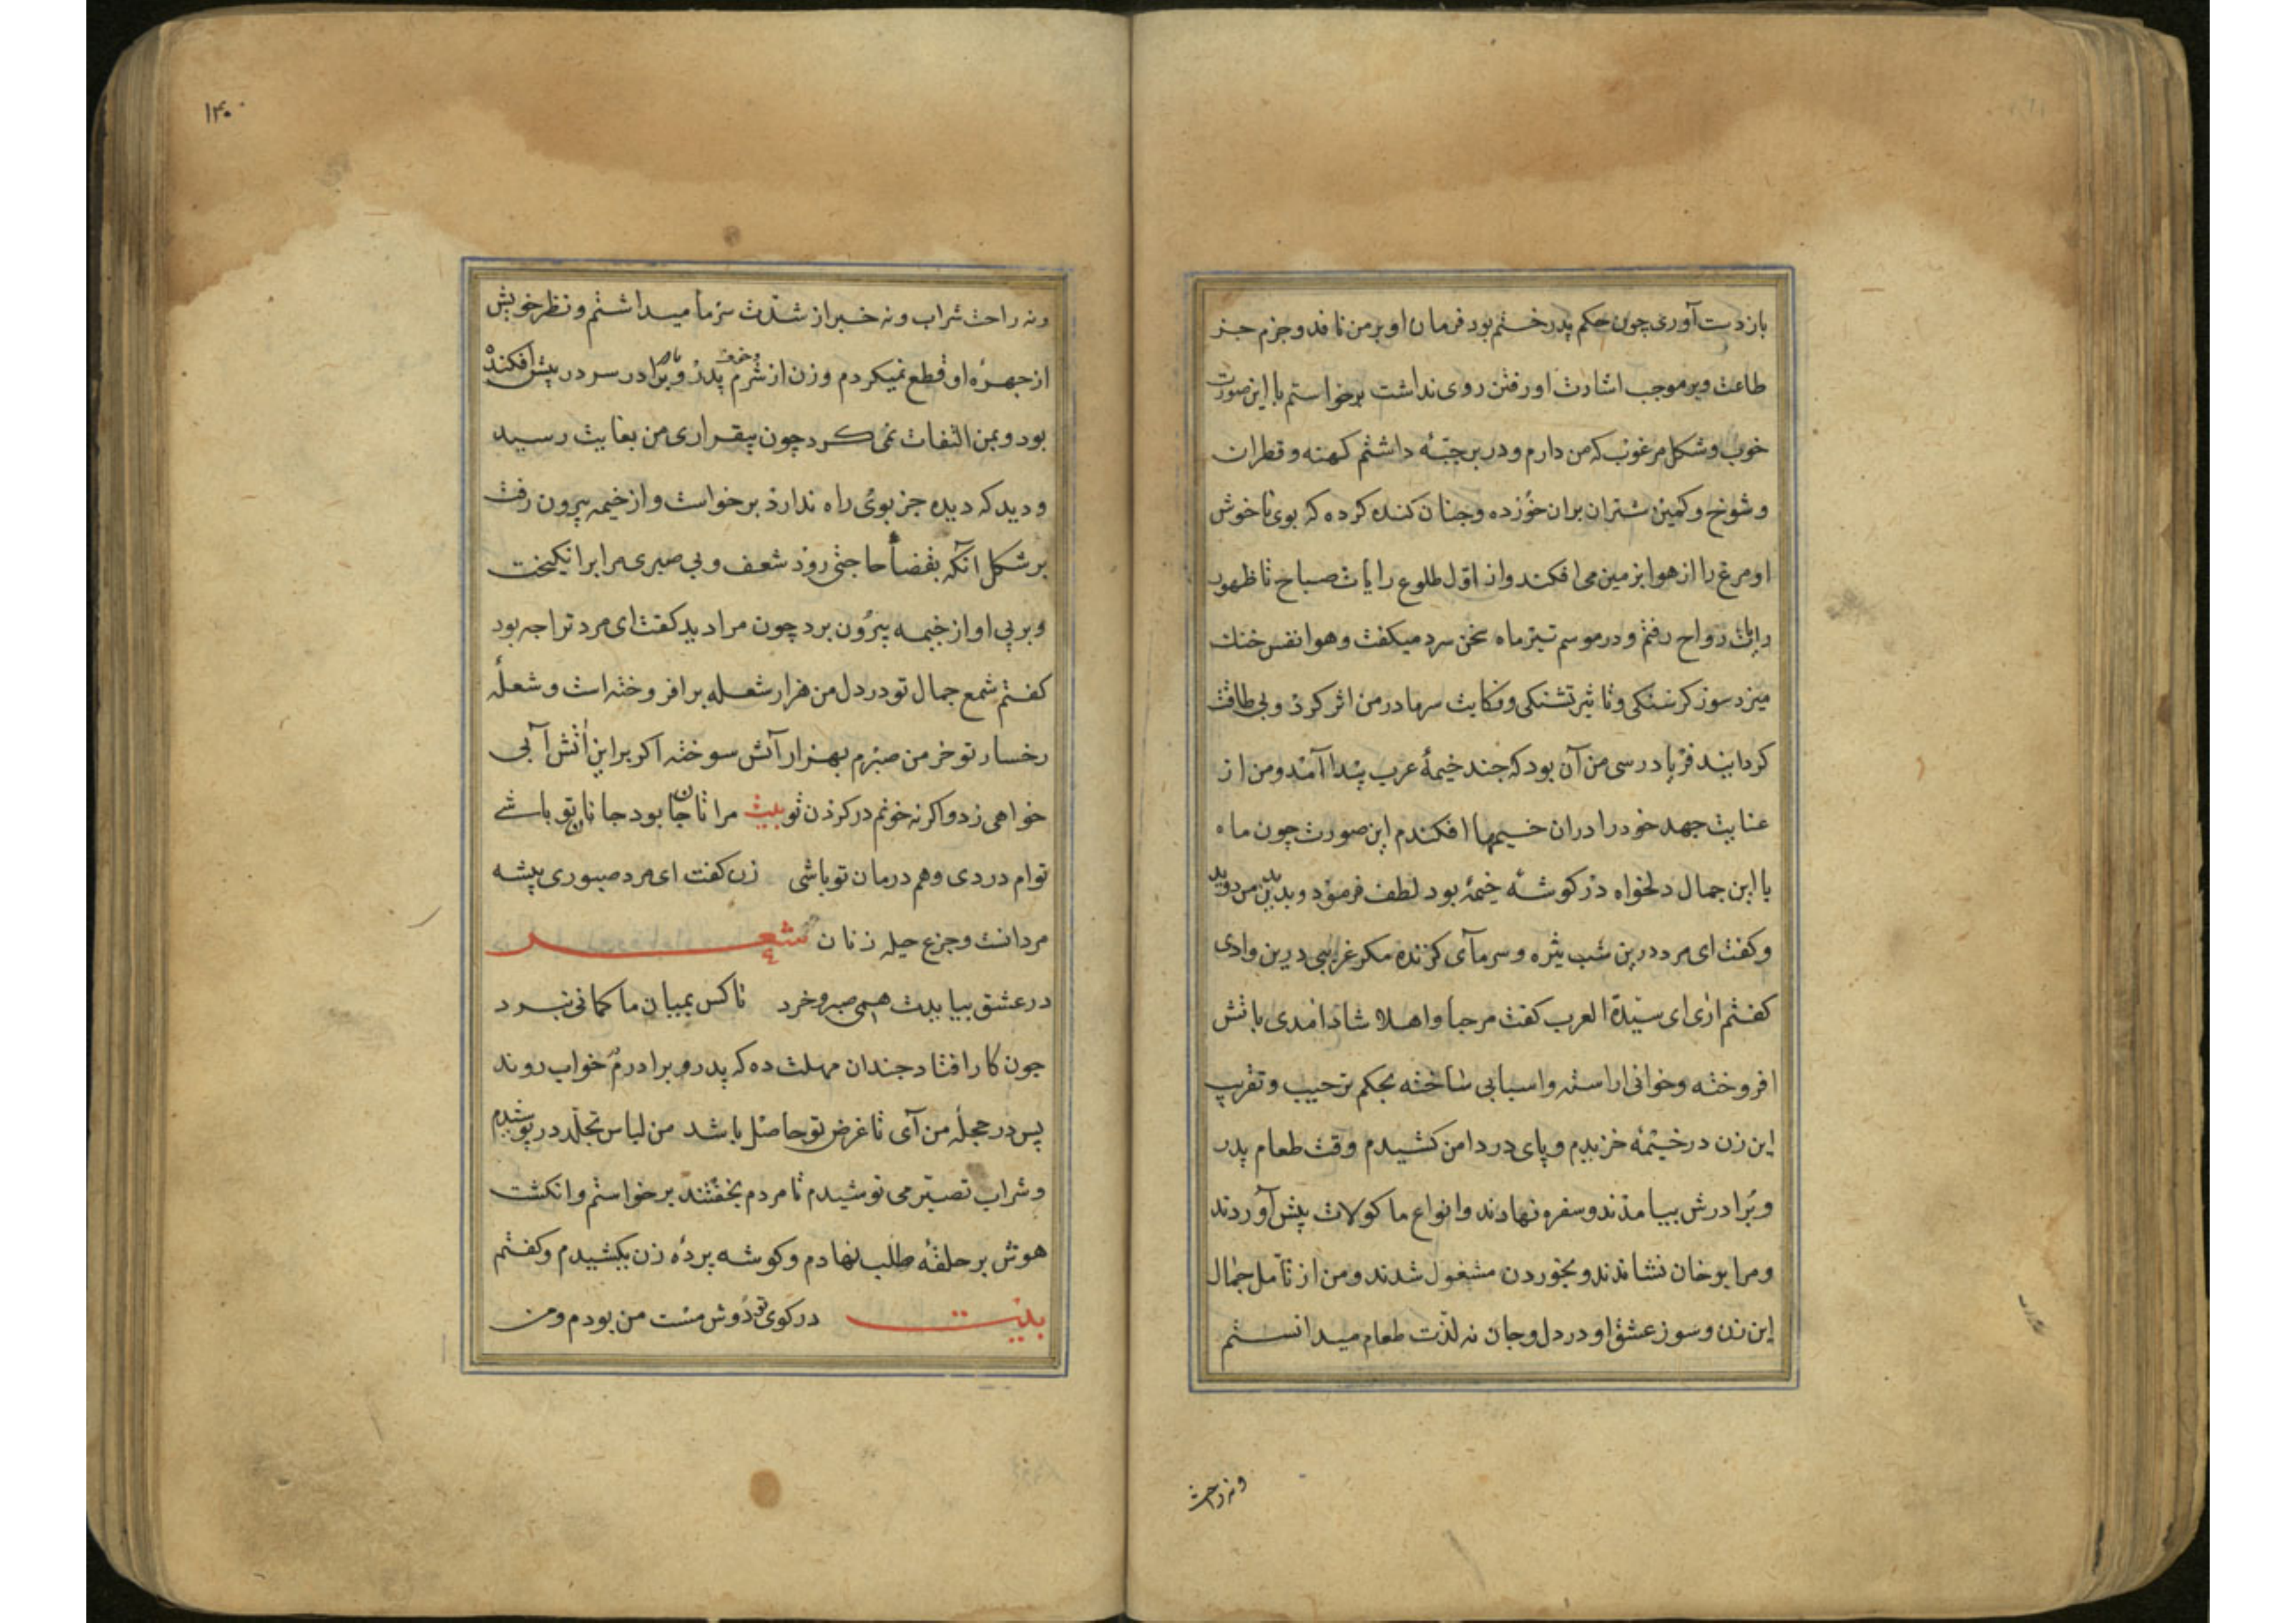 باز دست آوری چون حکم پدر ختم بود فرمان او بر من نافد و جزم جز
طاعت و بر موجب اشارت او رفتن روی نداشت برخواستم با این صورت
خوب و شکل مرغوب که من دارم و در بر جبّهٔ داشتم کهنه و قطران
و شوخ و کمیز شتران بران خورده و چنان کنده کرده که بوی ناخوش
او مرغ را از هوا بزمین می افکند و از اوّل طلوع رایات صباح تا ظهور
رایات رواح رفتم و در موسم تیر ماه سخن سرد میکفت و هوا نفس خنک
میزد سوز کرسنکی و تاثیر تشنکی و نکایت سرما در من اثر کرد و بی طاقت
کردانید فریادرسی من آن بود که چند خیمهٔ عرب پیدا آمد و من از
عنایت جهد خود را دران خیمها افکندم این صورت چون ماه
با این جمال دلخواه در کوشهٔ خیمهٔ بود لطف فرمود و بدیدن من دوید
و کفت ای مرد درین شب تیره و سرمآی کزنده مکر غریبی درین وادی
کفتم اری ای سیّدة العرب کفت مرحبا و اهلا شاد امدی با تش
افروخته و خوانی اراسته و اسبابی ساخته بحکم ترحیب و تقریب
این زن در خیمه خزیدم و پای در دامن کشیدم وقت طعام پدر
و برادرش بیامدند و سفره نهادند و انواع ماکولات پیش آوردند
و مرا بوخان نشاندند و بخوردن مشغول شدند و من از تأمل جمال
این زن و سوز عشق او در دل و جان نه لذت طعام میدانستم
و نه راحت
۱۴۰
و نه راحت شراب و نه خبر از شدّت سرما میداشتم و نظر خویش
از چهرهٔ او قطع نمیکردم و زن از شرم پدر و خوف برادر سر در پیش افکنده
بود و بمن التفات نمی کرد چون بیقراری من بغایت رسید
و دید که دیده جز بوی راه ندارد برخواست و از خیمه بیرون رفت
بر شکل آنکه بقضأ حاجتی رود شعف و بی صبری مرا برانکیخت
و بر پی او از خیمه بیرون برد چون مرا دید کفت ای مرد ترا چه بود
کفتم شمع جمال تو در دل من هزار شعله برافروخته است و شعلهٔ
رخسار تو خرمن صبرم بهزار آتش سوخته اکر براین اتش آبی
خواهی زد و اکر نه خونم در کردن تو بیت مرا تا جان بود جانان تو باشی
توام دردی و هم درمان تو باشی زن کفت ای مرد صبوری پیشه
مردانست و جزع حیله زنان شعر
در عشق بیایدت همی صبر و خرد تا کس بمیان ما کمانی نبرد
چون کار افتاد چندان مهلت ده که پدر و برادرم خواب روند
پس در حجلهٔ من آی تا غرض تو حاصل باشد من لباس تجلّد در پوشیدم
و شراب تصبّر می نوشیدم تا مردم بخفتند برخواستم و انکشت
هوش بر حلقهٔ طلب نهادم و کوشه پردهٔ زن بکشیدم و کفتم
بیت در کوی تو دوش مست من بودم و من